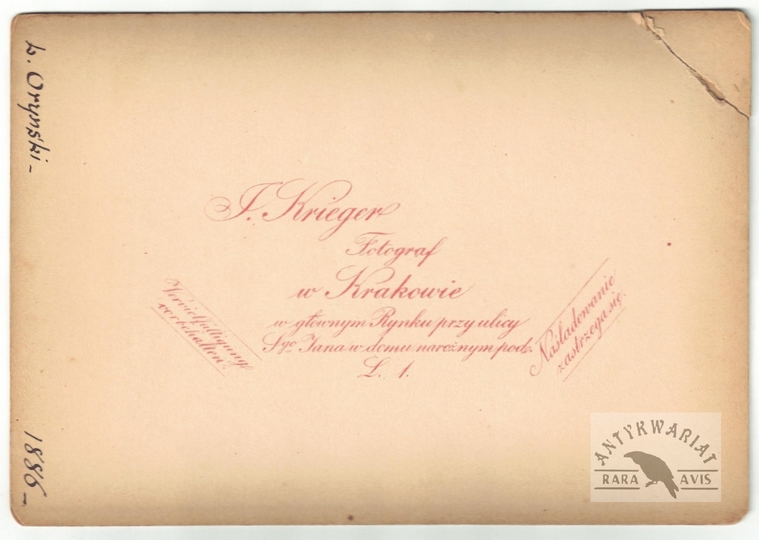 L. Orynski -
1886 -
I. Krieger
Fotograf
w Krakowie
w głownym Rynku przy ulicy
Sgo Jana w domu narożnym pod.
L. 1.
Vervielfältigung
vorbehalten.
Naśladowanie
zastrzega się.
ANTYKWARIAT
RARA AVIS